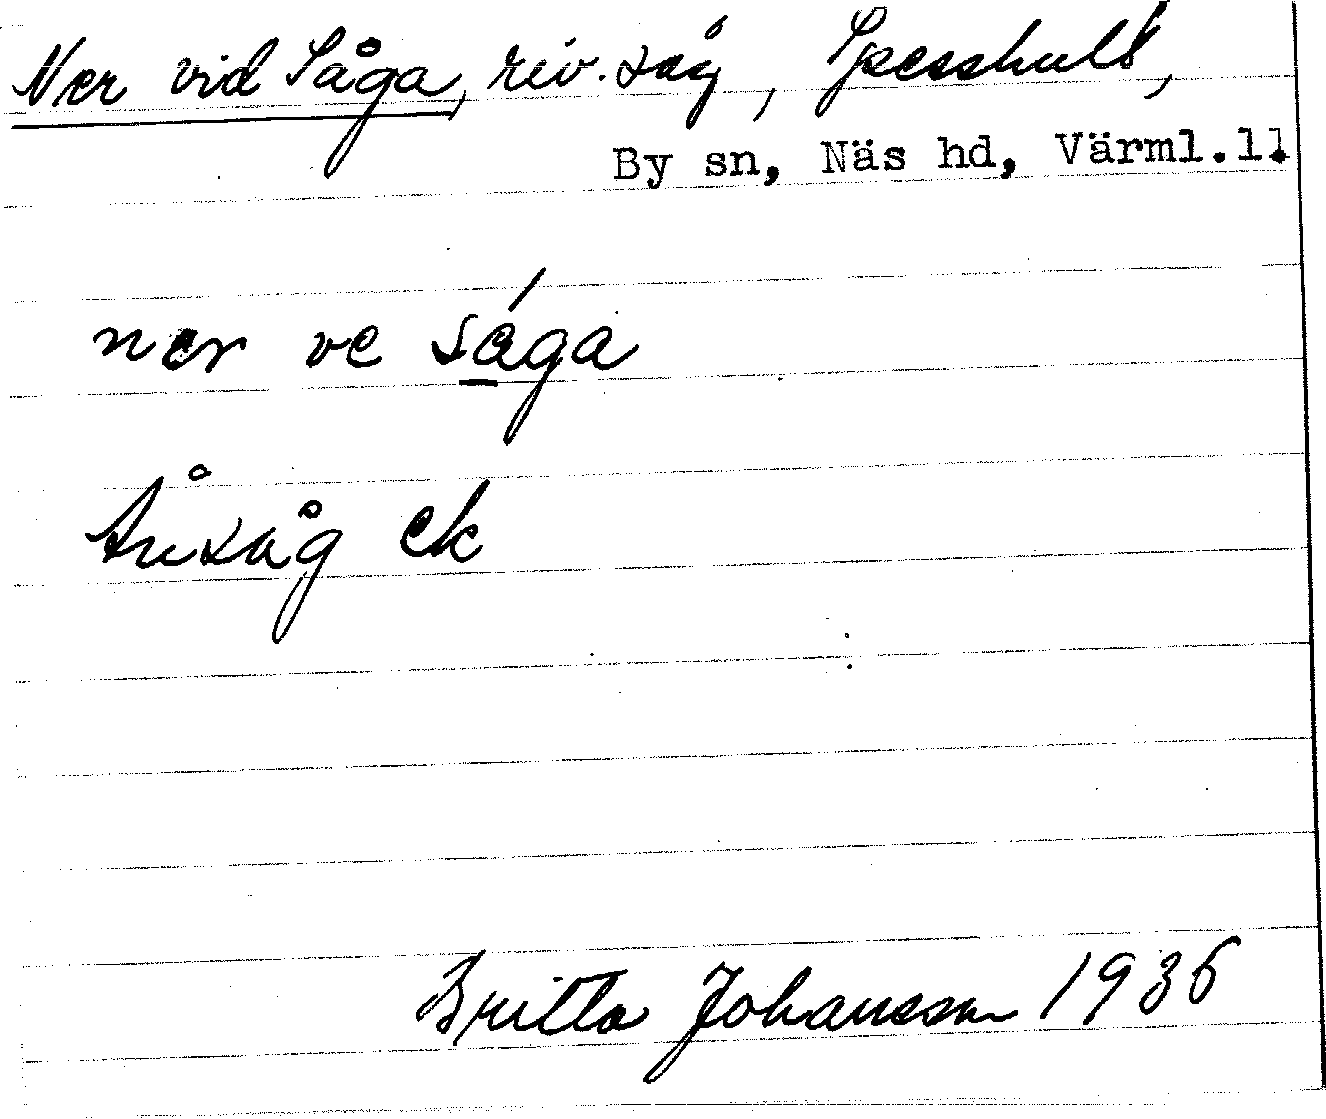 Ner vid Såga, riv. såg, Spesshult,
By sn, Näs hd, Värml.ll
ner ve såga
Ånsåg ek
Britta Johansson 1936